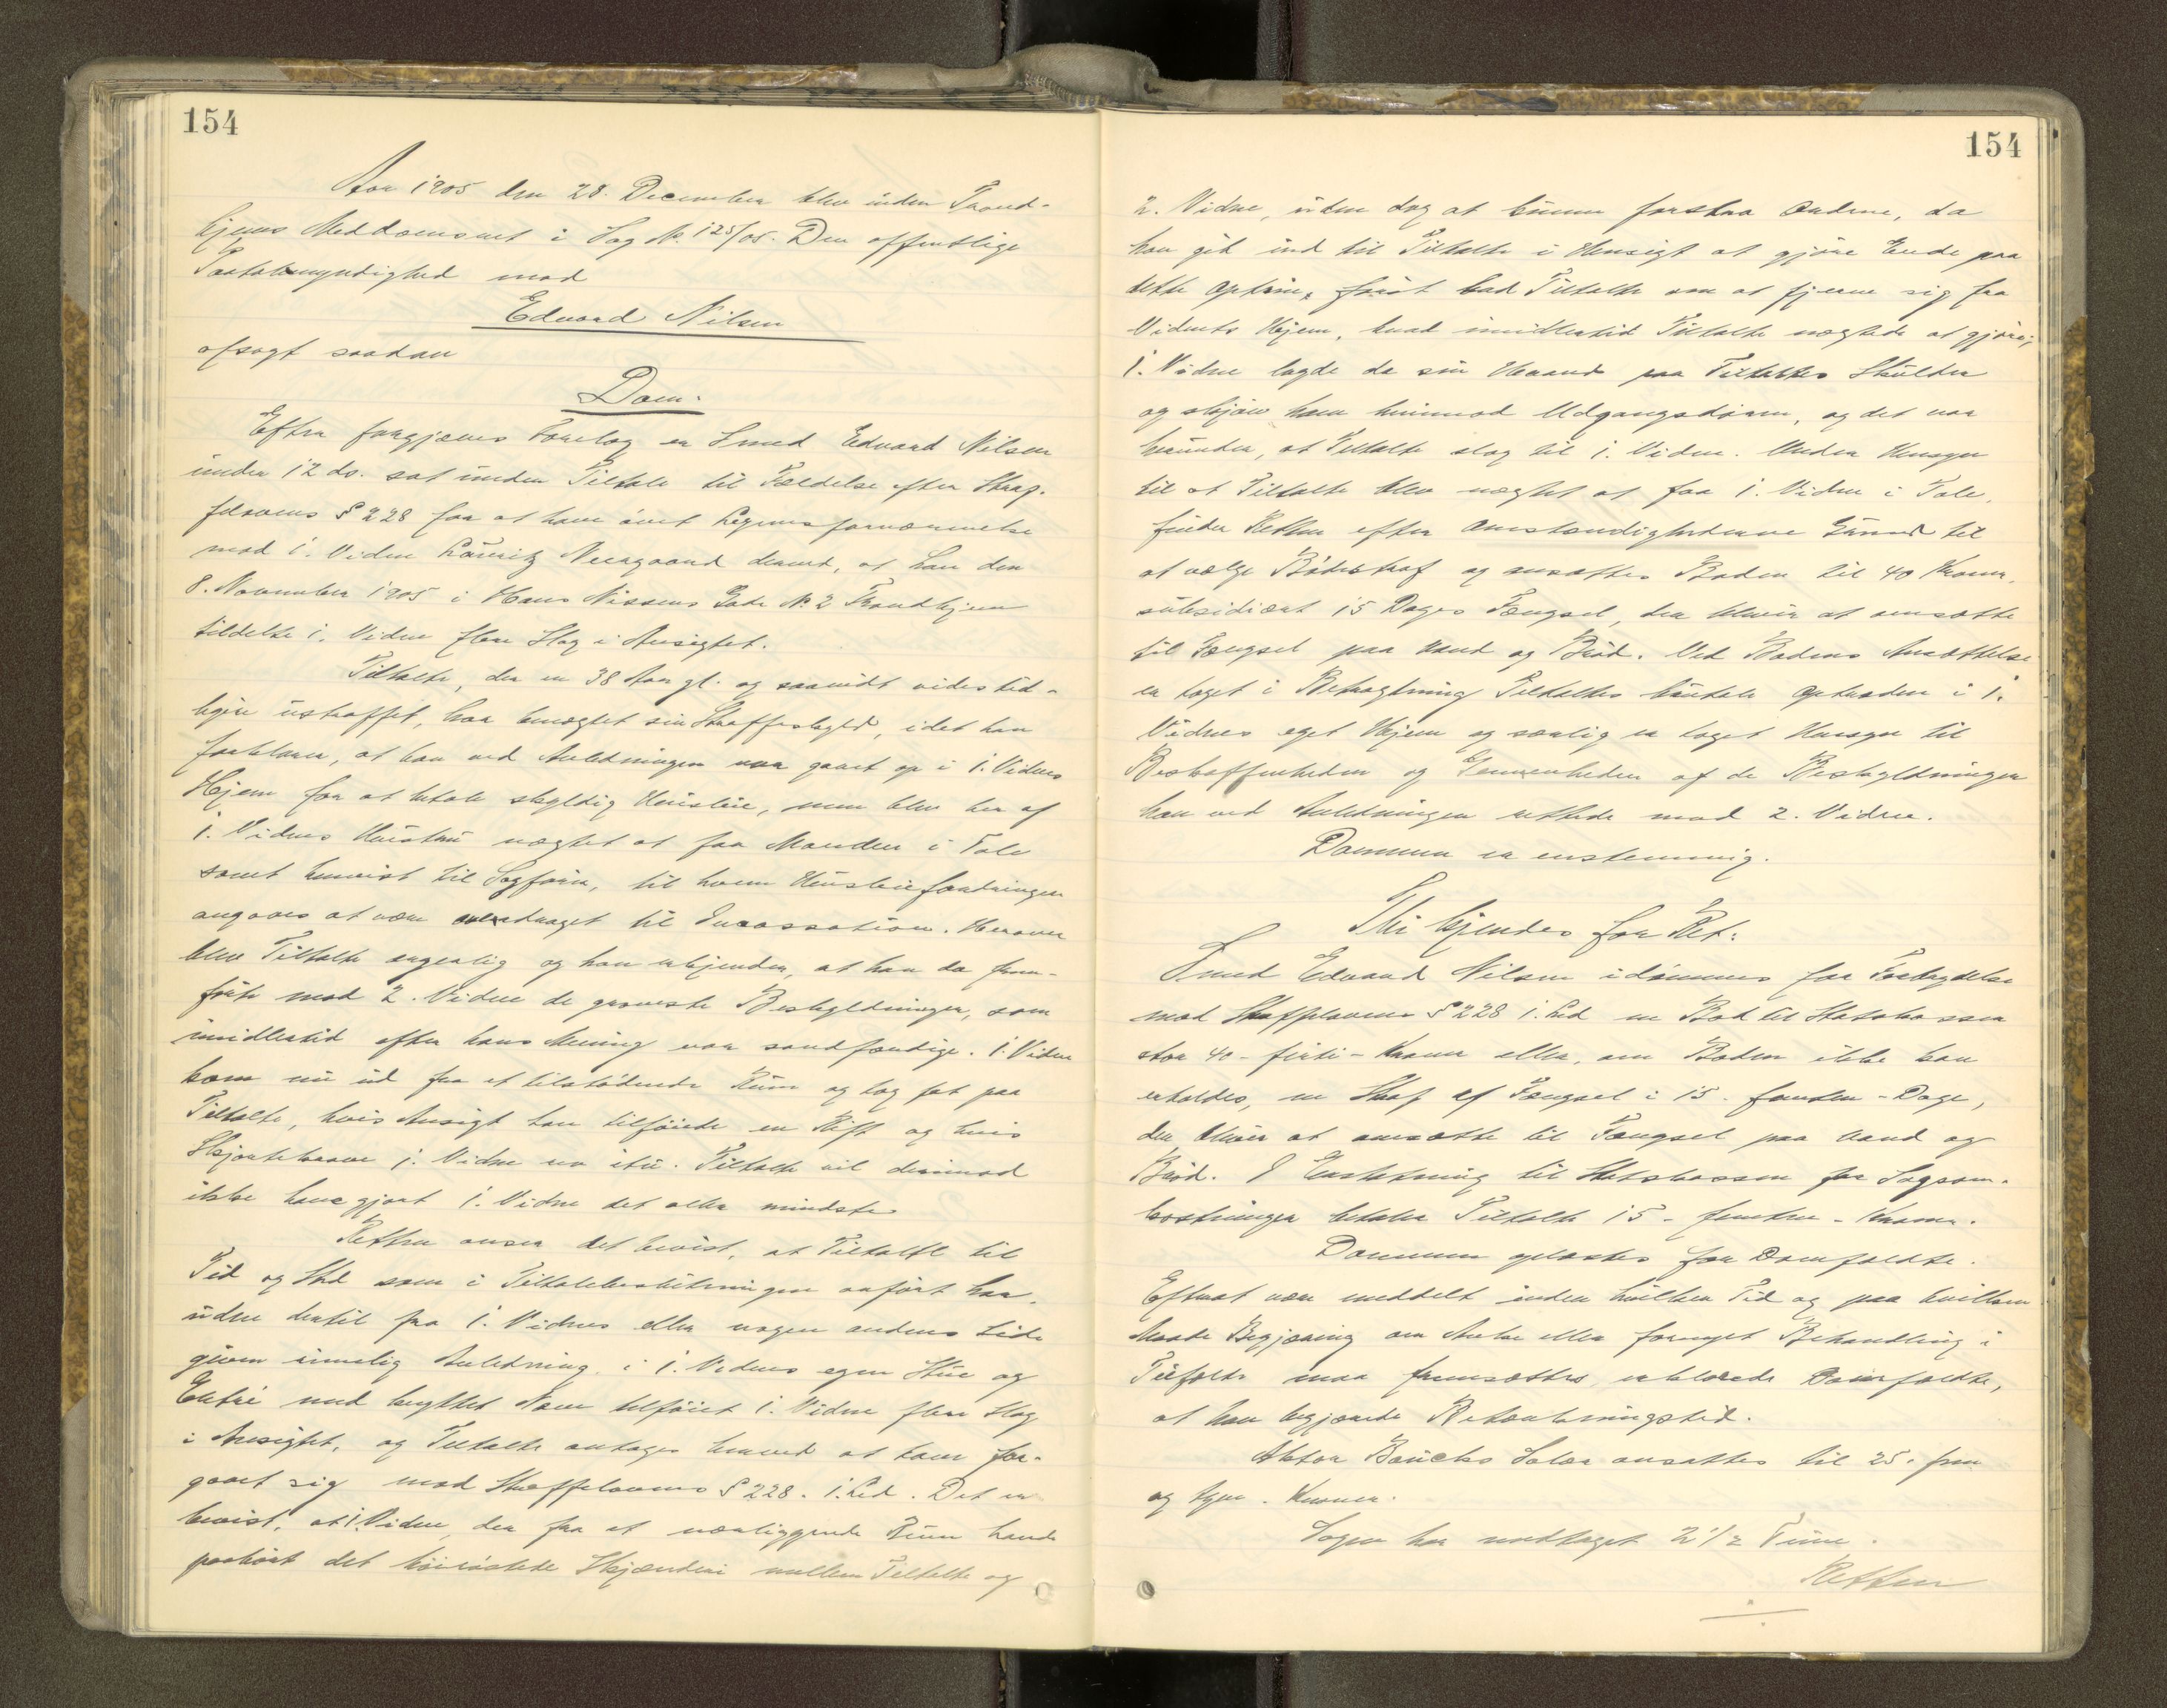 154
Aar 1905 den 28. December blev inden Trond-
hjems Meddomsret i Sag No. 125/05. Den offentlige
Paatalemyndighed mod
Edvard Nilsen
afsagt saadan
Dom.
Efter forgjæves Forelæg er Smed Edvard Nilsen
under 12 ds. sat under Tiltale til Fældelse efter Straf-
felovens § 228 for at have øvet Legemsfornærmelse
mod 1. Vidne Lauritz Neergaard derved, at han den
8. November 1905 i Hans Nissens Gade No. 2 Trondhjem
tildelte 1. Vidne flere Slag i Ansigtet.
Tiltalte, der er 38 Aar gl. og saavidt vides tid-
ligere ustraffet, har benegtet sin Straffeskyld, idet han
forklarer, at han ved Anledningen var gaaet op i 1. Vidnes
Hjem for at betale skyldig Husleie, men blev her af
1. Vidnes Hustru nægtet at faa Manden i Tale
samt henvist til Sagfører, til hvem Husleiefordringen
angaves at være overdraget til Incassation. Herover
blev Tiltalte ærgerlig og han erkjender, at han da frem-
førte mod 2. Vidne de groveste Beskyldninger, som
imidlertid efter hans Mening var sandfærdige. 1. Vidne
kom nu ud fra et tilstødende Rum og tog fat paa
Tiltalte, hvis Ansigt han tilføiede en Rift og hvis
Skjortekrave 1. Vidne rev itu. Tiltalte vil derimod
ikke have gjort 1. Vidne det aller mindste.
Retten anser det bevist, at Tiltalte til
Tid og Sted som i Tiltalebeslutningen anført har,
uden dertil fra 1. Vidnes eller nogen andens Side
given rimelig Anledning, i 1. Vidnes egen Stue og
Entré med knyttet Næve tilføiet 1. Vidne flere Slag
i Ansigtet, og Tiltalte antages herved at have for-
gaaet sig mod Straffelovens § 228. 1. Led. Det er
bevist, at 1. Vidne, der fra et nærliggende Rum havde
paahørt det høirøstede Skjænderi mellem Tiltalte og
154
2. Vidne, uden dog at kunne forstaa Ordene, da
han gik ind til Tiltalte i Hensigt at gjøre Ende paa
dette Optrin, først bad Tiltalte om at fjerne sig fra
Vidnets Hjem, hvad imidlertid Tiltalte nægtede at gjøre;
1. Vidne lagde da sin Haand paa Tiltaltes Skulder
og skjøv ham henimod Udgangsdøren, og det var
herunder, at Tiltalte slog til 1. Vidne. Under Hensyn
til at Tiltalte blev nægtet at faa 1. Vidne i Tale,
finder Retten efter Omstændighederne Grund til
at vælge Bødestraf og ansættes Boden til 40 Kroner,
subsidiært 15 Dages Fængsel, der bliver at omsætte
til Fængsel paa Vand og Brød. Ved Bodens Ansættelse
er taget i Betragtning Tiltaltes brutale Optræden i 1.
Vidnes eget Hjem og særlig er taget Hensyn til
Beskaffenheden og Gemenheden af de Beskyldninger
han ved Anledningen rettede mod 2. Vidne.
Dommen er enstemmig.
Thi kjendes for Ret:
Smed Edvard Nilsen idømmes for Forbrydelse
mod Straffelovens § 228 1. Led en Bod til Statskassen
stor 40 - firti - Kroner eller, om Boden ikke kan
erholdes, en Straf af Fængsel i 15 - femten - Dage,
der bliver at omsætte til Fængsel paa Vand og
Brød. I Erstatning til Statskassen for Sagsom-
kostninger betaler Tiltalte 15 - femten - Kroner.
Dommen oplæstes for Domfældte.
Efterat være meddelt inden hvilken Tid og paa hvilken
Maade Begjæring om Anke eller fornyet Behandling i
Tilfælde maa fremsættes, erklærede Domfældte,
at han begjærede Betænkningstid.
Aktor Saler ansattes til 25. fem
og tyve. Kroner.
Sagen har medtaget 2 1/2 Time.
Retten